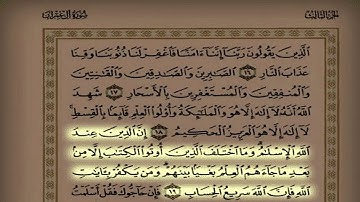 سورة آل عمران
الجزء الثالث
ٱلَّذِينَ يَقُولُونَ رَبَّنَآ إِنَّنَآ ءَامَنَّا فَٱغْفِرْ لَنَا ذُنُوبَنَا وَقِنَا
عَذَابَ ٱلنَّارِ ١٦ ٱلصَّٰبِرِينَ وَٱلصَّٰدِقِينَ وَٱلْقَٰنِتِينَ
وَٱلْمُنفِقِينَ وَٱلْمُسْتَغْفِرِينَ بِٱلْأَسْحَارِ ١٧ شَهِدَ
ٱللَّهُ أَنَّهُۥ لَآ إِلَٰهَ إِلَّا هُوَ وَٱلْمَلَٰٓئِكَةُ وَأُو۟لُوا۟ ٱلْعِلْمِ قَآئِمًۢا بِٱلْقِسْطِ
لَآ إِلَٰهَ إِلَّا هُوَ ٱلْعَزِيزُ ٱلْحَكِيمُ ١٨ إِنَّ ٱلدِّينَ عِندَ
ٱللَّهِ ٱلْإِسْلَٰمُ وَمَا ٱخْتَلَفَ ٱلَّذِينَ أُوتُوا۟ ٱلْكِتَٰبَ إِلَّا مِنۢ
بَعْدِ مَا جَآءَهُمُ ٱلْعِلْمُ بَغْيًۢا بَيْنَهُمْ وَمَن يَكْفُرْ بِـَٔايَٰتِ
ٱللَّهِ فَإِنَّ ٱللَّهَ سَرِيعُ ٱلْحِسَابِ ١٩ فَإِنْ حَآجُّوكَ فَقُلْ أَسْلَمْتُ